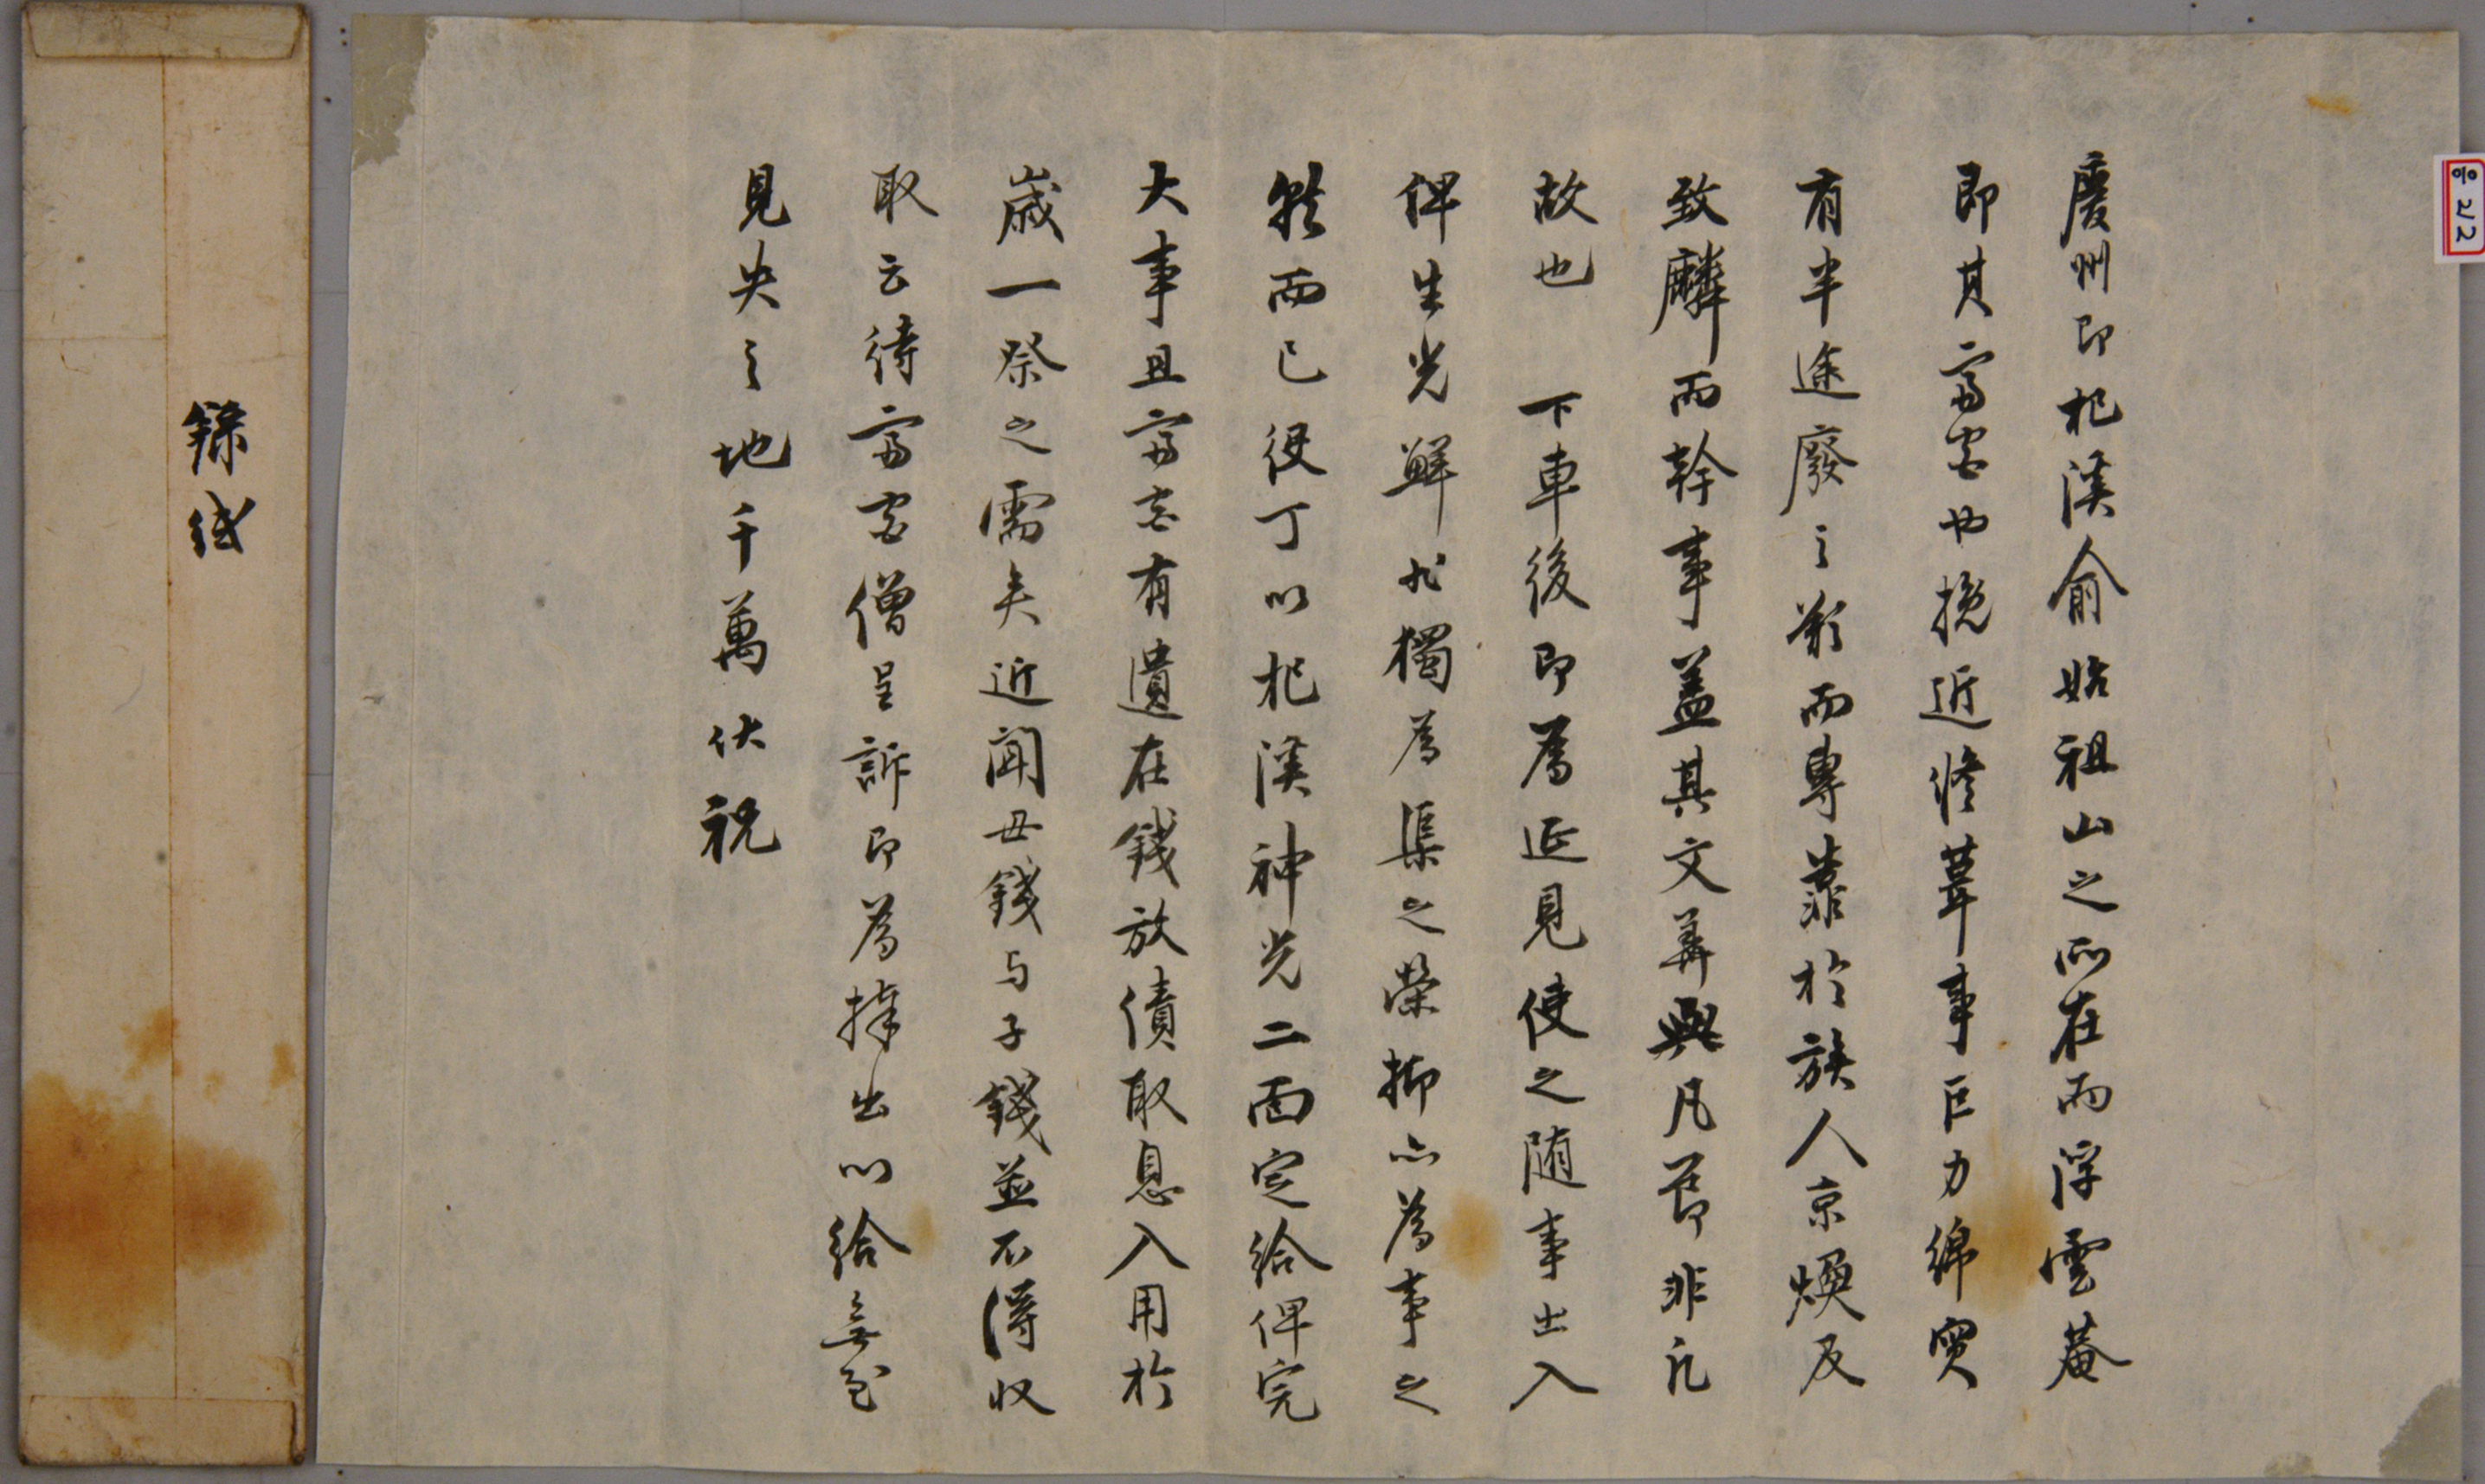 慶州即杞溪俞始祖山之所在而浮雲菴
即其齋室也挽近修葺事巨力綿實
有半途廢之歎而專靠於族人京煥及
致麟而幹事蓋其文華與凡節非凡
故也 下車後即爲延見使之随事出入
俾生光鮮非獨爲渠之榮抑亦爲事之
幹而已役丁以杞溪神光二面定給俾完
大事且齋舍有遺在錢放債取息入用於
歲一祭之需矣近聞母錢与子錢並不得收
取云待齋舍僧呈訴即爲捧出以給無至
見失之地千萬伏祝
錄紙
응 212